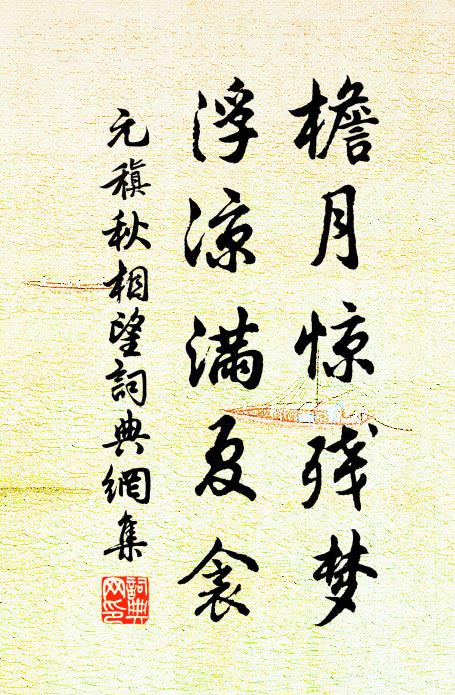 檐月惊残梦
浮凉满夏衾
元稹秋相望詞典網集
詞典网印